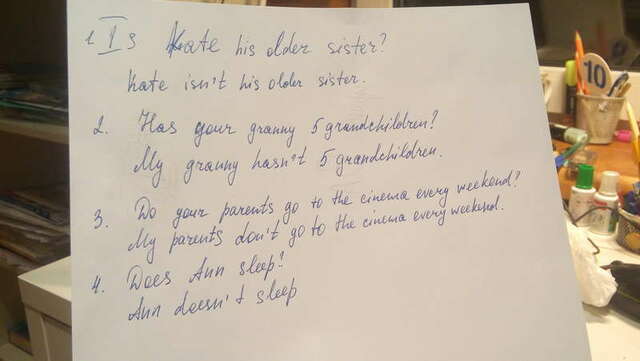 1 Is Kate his older sister?
Kate isn't his older sister.
2. Has your granny 5 grandchildren?
My granny hasn't 5 grandchildren.
3. Do your parents go to the cinema every weekend?
My parents don't go to the cinema every weekend.
4. Does Ann sleep?
Ann doesn't sleep
10